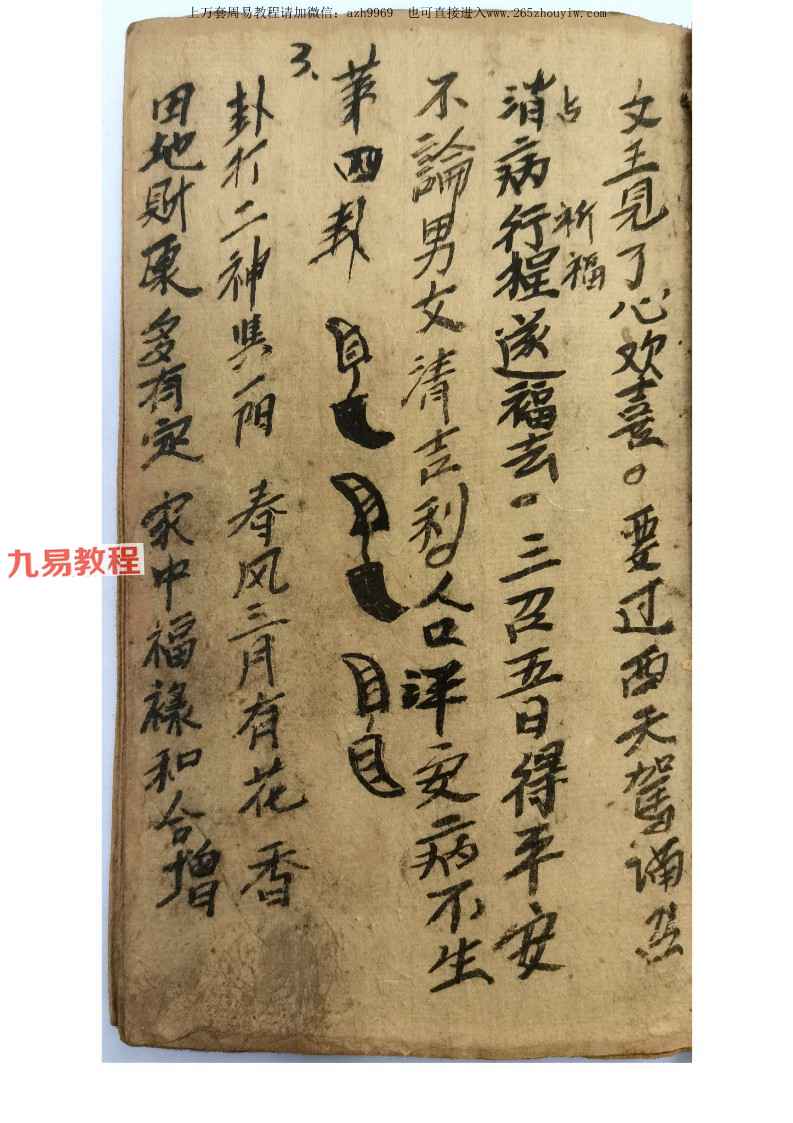 上万套周易教程请加微信：azh9969　也可直接进入www.265zhouyiw.com
文王見了心欢喜。要过西天
占 祈福
消病行程遂福去。三召五日得平安
不論男女清吉利。人口洋安病不生
3、
苐四卦
卦打二神與一阳 春风三月有花香
田地財 多有定 家中福祿和合增
九易教程